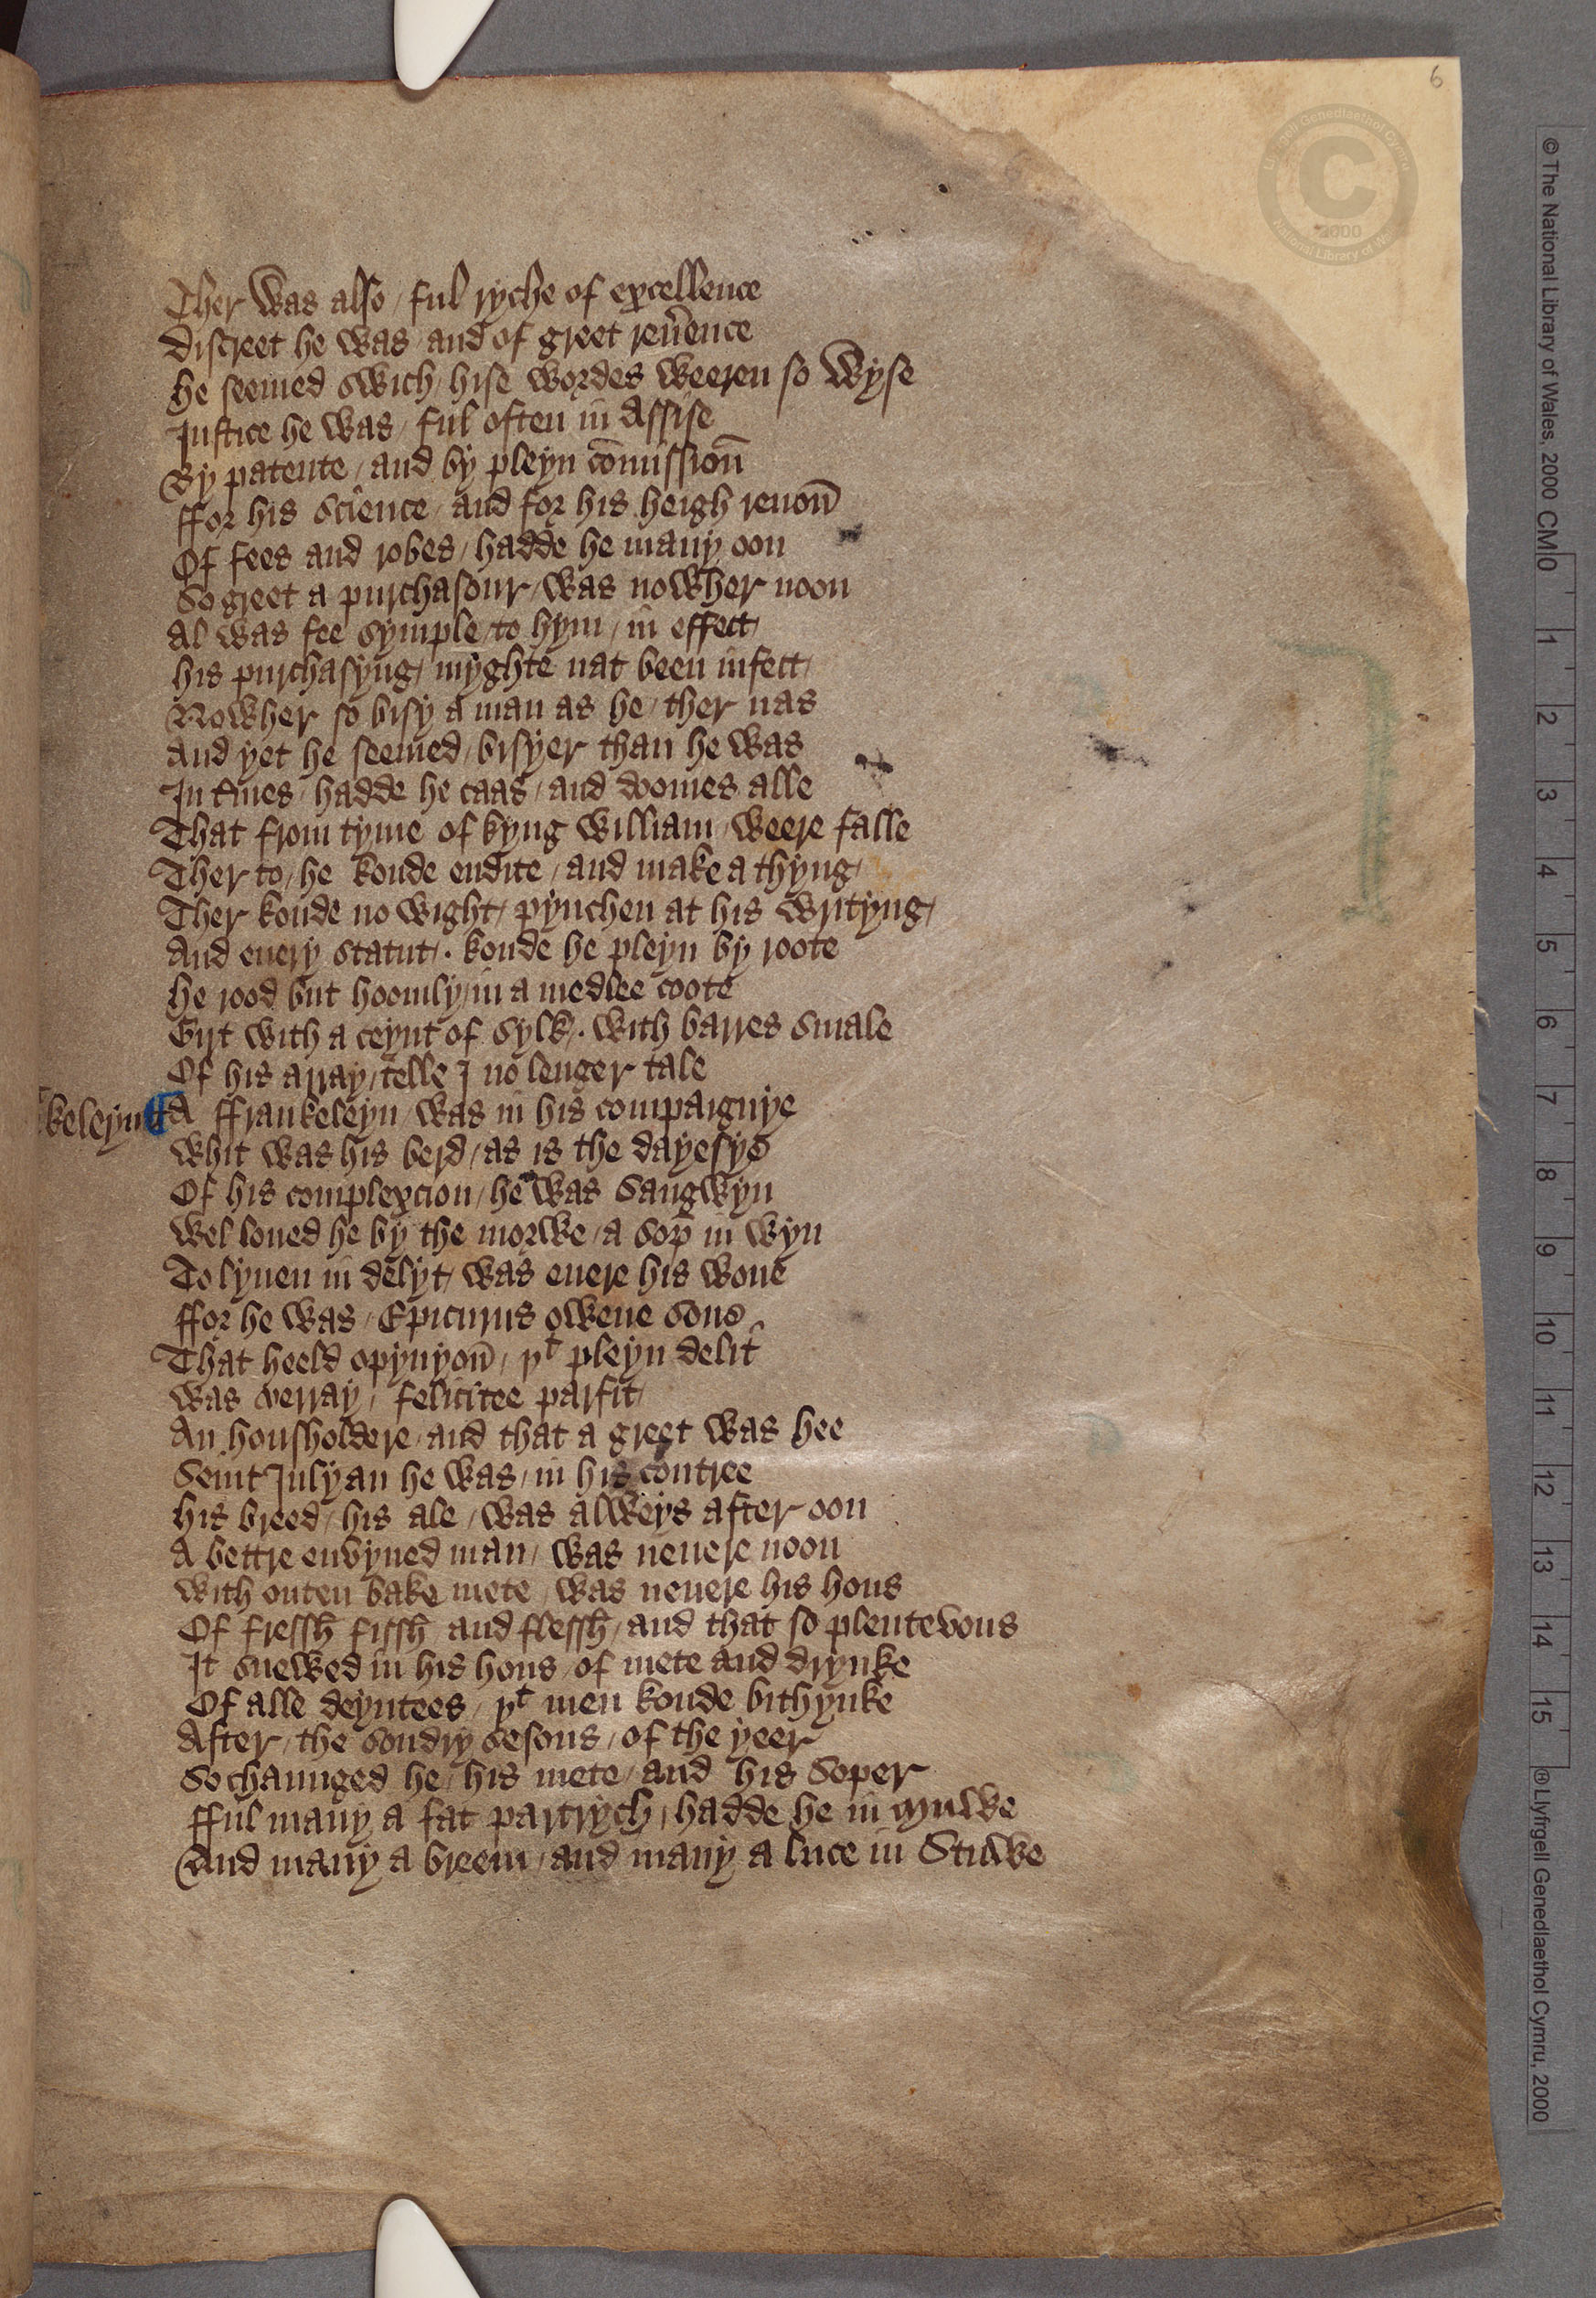 6
Ther was also / ful ryche of excellence
Discreet he was / and of greet reu̅ence
He seemed swich / hise wordes weeren so wyse
Iustice he was / ful often in Assise
By patente / and by pleyn co̅missiou̅n
ffor his science / and for his heigh renou̅n
Of fees and robes / hadde he many oon
So greet a purchasour / was nowher noon
Al was fee symple / to hym / in effect /
His purchasyng / myghte nat been infect /
Nowher so bisy a man as he / ther nas
And yet he seemed / bisyer than he was
In t̅mes / hadde he caas / and doomes alle
That from tyme of kyng William / weere falle
Ther to / he koude endite / and make a thyng /
Ther koude no wight / pynchen at his writyng /
And euery statut / . koude he pleyn by roote
He rood but hoomly / in a medlee coote
Girt with a ceynt of sylk / . with barres smale
Of his array / telle I no lenger tale
keleyn ¶ A ffrankeleyn / was in his compaignye
Whit was his berd / as is the dayesye
Of his complexcion / he was sangwyn
Wel loued he by the morwe / a sop in wyn
To lyuen in delyt / was euere his wone
ffor he was / Epicurus owene sone
That heeld opynyou̅n / þt pleyn delit
Was verray / felicitee parfit /
An housholdere / and that a greet was hee
Seint Iulyan he was / in his contree
His breed / his ale / was alweys after oon
A bettre envyned man / was neuere noon
With outen bake mete / was neuere his hous
Of fressh fissh and flessh / and that so plenteuous
It snewed in his hous / of mete and drynke
Of alle deyntees / þt men koude bithynke
After / the sondry sesons / of the yeer
So chaunged he / his mete / and his soper
fful many a fat partrych / hadde he in Muwe
And many a breem / and many a luce in Stuwe
© The National Library of Wales, 2000 CM
0 1 2 3 4 5 6 7 8 9 10 11 12 13 14 15
® Llyfrgell Genedlaethol Cymru, 2000